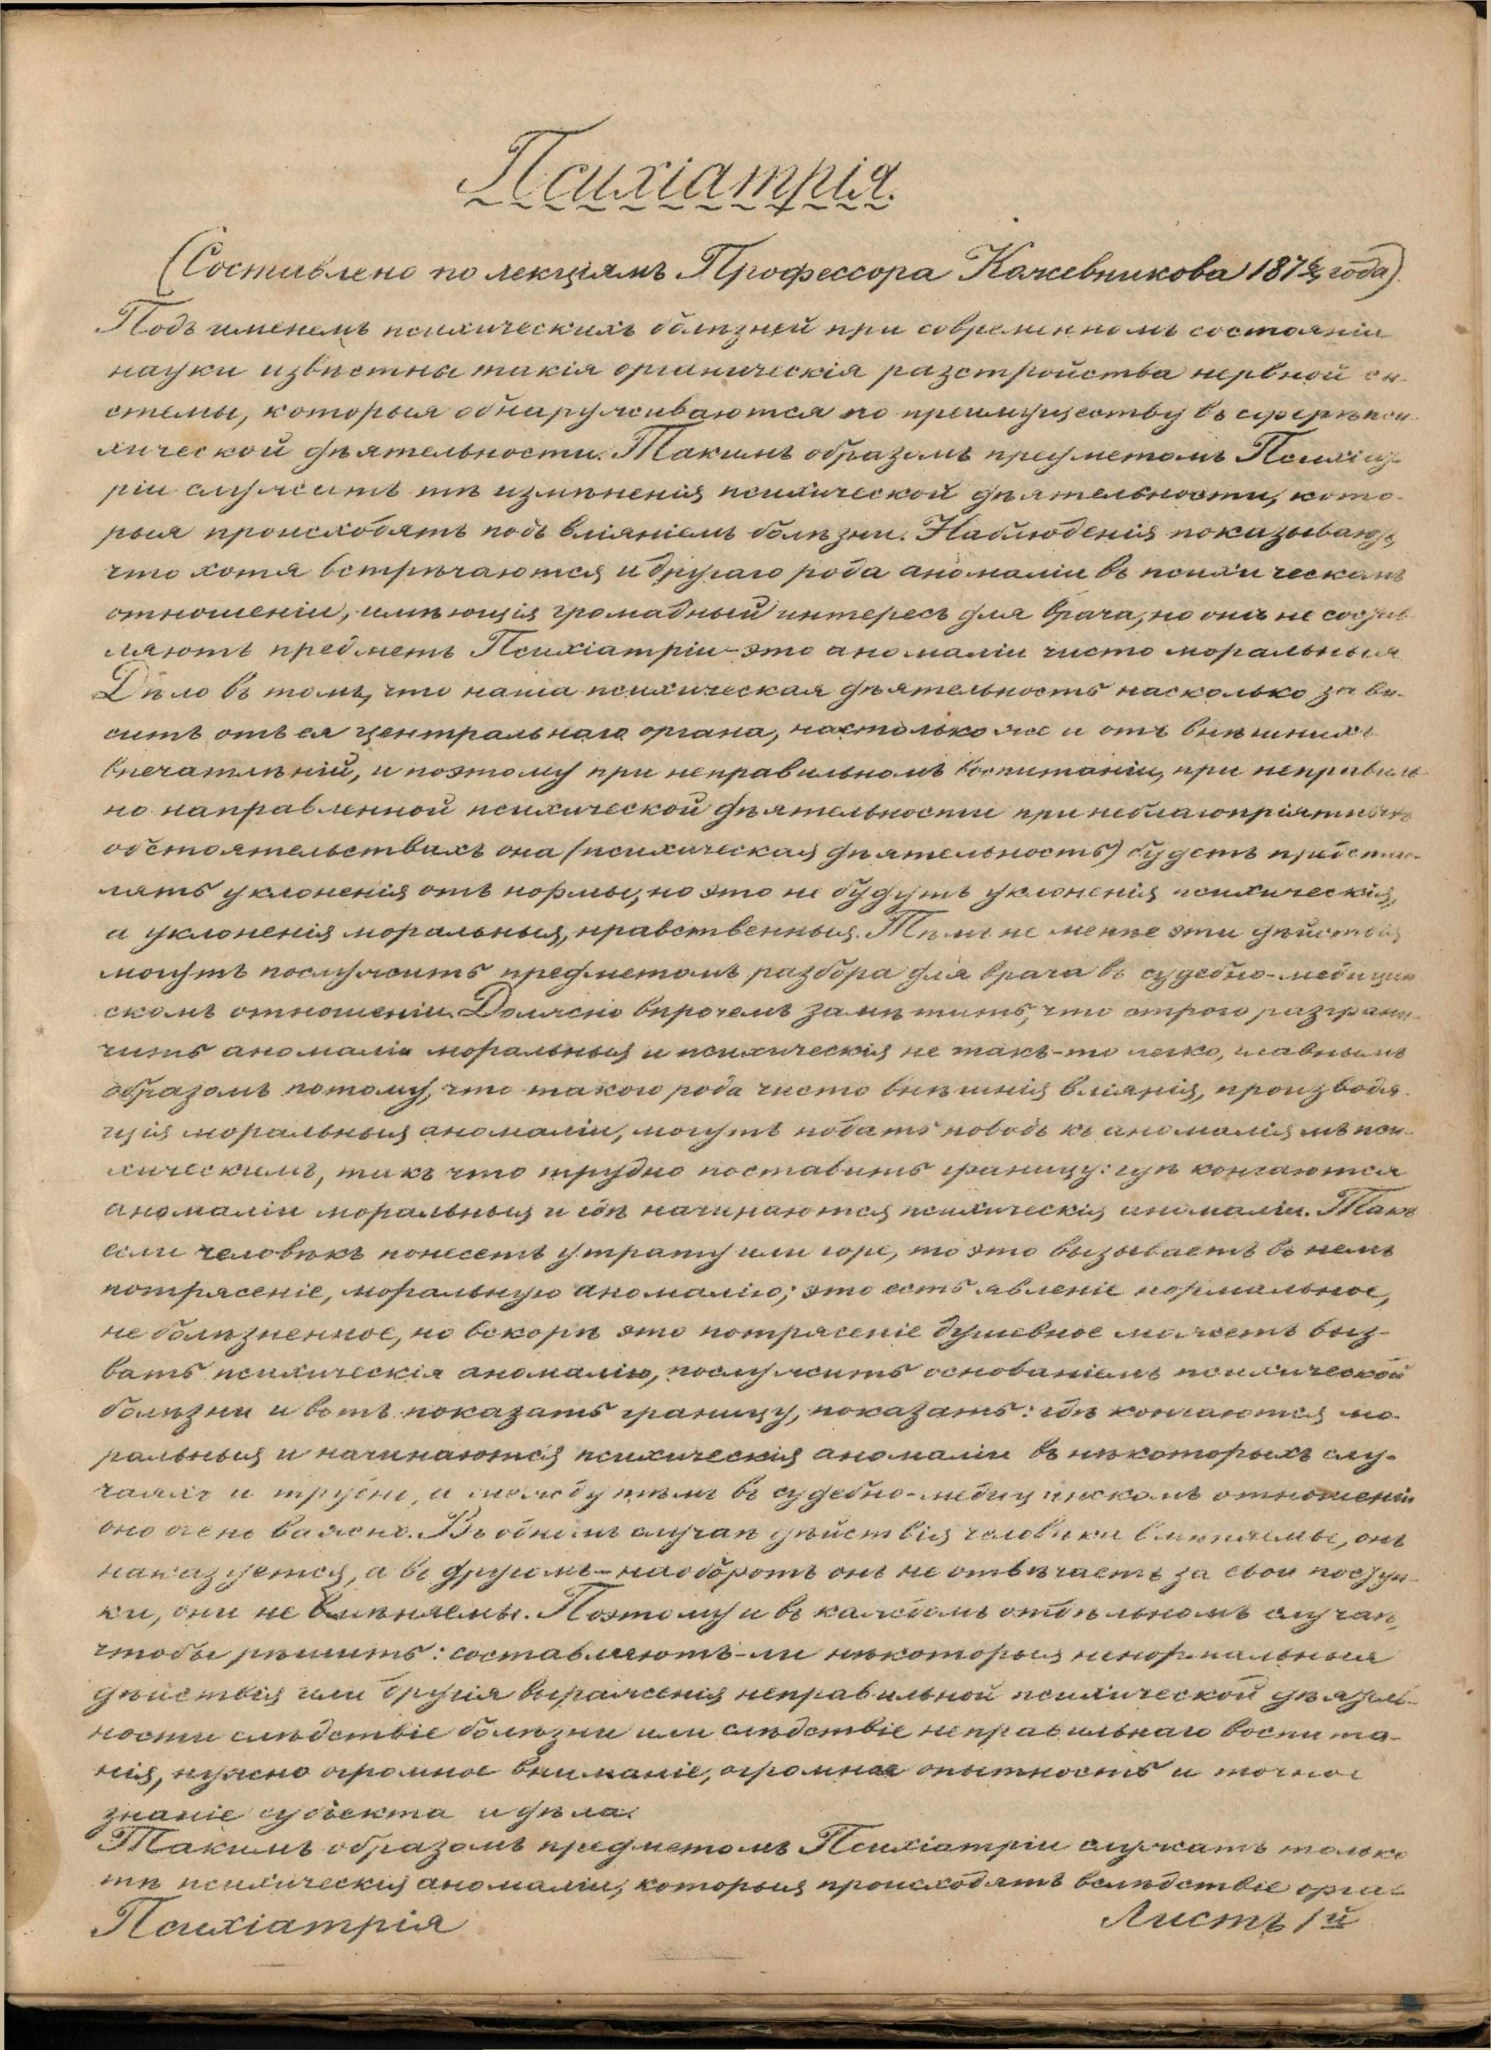 Психіатрія.
(Составлено по лекціямъ Профессора Кажевникова 187 года).
Подъ именемъ психическихъ болѣзней при современномъ состояніи
науки извѣстны такія органическія разстройства нервной си-
стемы, которыя обнаруживаются по преимуществу въ сферѣ пси-
хической дѣятельности. Такимъ образомъ предметомъ Психіат-
ріи служитъ тѣ измѣненія психической дѣятельности, кото-
рыя происходятъ подъ вліяніемъ болѣзни. Наблюденія показываютъ,
что хотя встрѣчаются и другаго рода аномаліи въ психическомъ
отношеніи, имѣющія громадный интересъ для врача, но онѣ не состав-
ляютъ предметъ Психіатріи - это аномаліи чисто моральныя
Дѣло въ томъ, что наша психическая дѣятельность насколько зави-
ситъ отъ ея центральнаго органа, настолько же и отъ внѣшнихъ
впечатлѣній, и поэтому при неправильномъ воспитаніи, при неправиль-
но направленной психической дѣятельности при неблагопріятныхъ
обстоятельствахъ она (психическая дѣятельность) будетъ представ-
лять уклоненія отъ нормы, но это не будутъ уклоненія психическія,
а уклоненія моральныя, нравственныя. Тѣмъ не менѣе эти дѣйствія
могутъ послужить предметомъ разбора для врача въ судебно-медицин-
скомъ отношеніи. Должно впрочемъ замѣтить, что строго разграни-
чить аномаліи моральныя и психическія не такъ-то легко, главнымъ
образомъ потому, что такого рода чисто внѣшнія вліянія, производя-
щія моральныя аномаліи, могутъ подать поводъ къ аномаліямъ пси-
хическимъ, такъ что трудно поставить границу: гдѣ кончаются
аномаліи моральныя и гдѣ начинаются психическія аномаліи. Такъ
если человѣкъ понесетъ утрату или горе, то это вызываетъ въ немъ
потрясеніе, моральную аномалію; это есть явленіе нормальное,
не болѣзненное, но вскорѣ это потрясеніе душевное можетъ выз-
вать психическія аномалію, послужить основаніемъ психической
болѣзни и вотъ показать границу, показать: гдѣ кончаются мо-
ральныя и начинаются психическія аномаліи въ нѣкоторыхъ слу-
чаяхъ и трудно, а между тѣмъ въ судебно-медицинскомъ отношеніи
оно очень важно. Въ одномъ случаѣ дѣйствія человѣка вмѣняемы, онъ
наказуется, а въ другомъ - наоборотъ онъ не отвѣчаетъ за свои поступ-
ки, они не вмѣняемы. Поэтому и въ каждомъ отдѣльномъ случаѣ,
чтобы рѣшить: составляютъ-ли нѣкоторыя ненормальныя
дѣйствія или другія выраженія неправильной психической дѣятель-
ности слѣдствіе болѣзни или слѣдствіе неправильнаго воспита-
нія, нужно огромное вниманіе, огромная опытность и точное
знаніе субъекта и дѣла.
Такимъ образомъ предметомъ Психіатріи служатъ только
тѣ психическія аномаліи, которыя происходятъ вслѣдствіе орга-
Психіатрія
Листъ 1й